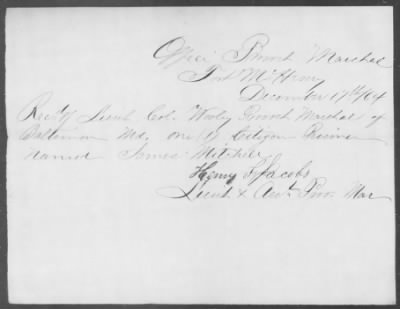 Office Provost Marshal
Fort McHenry
December 17th/64
Rec'd of Lieut Col. Wooley Provost Marshal of
Baltimore Md, one (1) Citizen Prisoner
named James Mitchell
Henry S Jacobs
Lieut & Asst. Pro. Mar